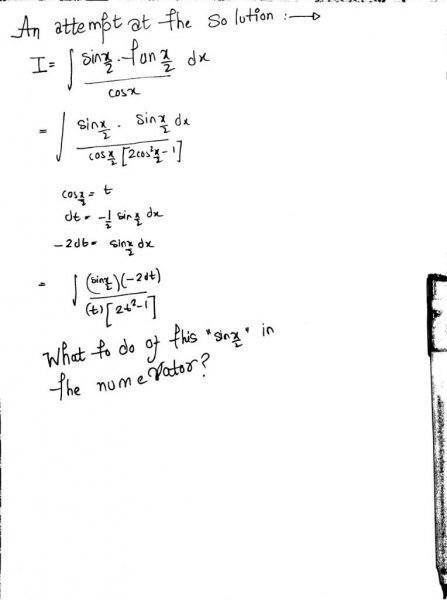 An attempt at the Solution :—→
I = ∫ sin x/2 . tan x/2 / cosx dx
= ∫ sin x/2 . sin x/2 dx / cos x/2 [2cos² x/2 - 1]
cos x/2 = t
dt = -1/2 sin x/2 dx
-2dt = sin x/2 dx
= ∫ (sin x/2)(-2dt) / (t)[2t²-1]
What to do of this "sin x/2" in
the numerator?